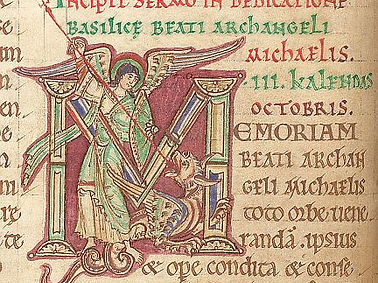 INCIPIT SERMO IN DEDICATIONE
BASILICĘ BEATI ARCHANGELI
MICHAELIS.
·III· KALENDAS
OCTOBRIS.
MEMORIAM
BEATI ARCHAN
GELI MICHAELIS
toto orbe uene
randā. ipsius
& opę condita & conse